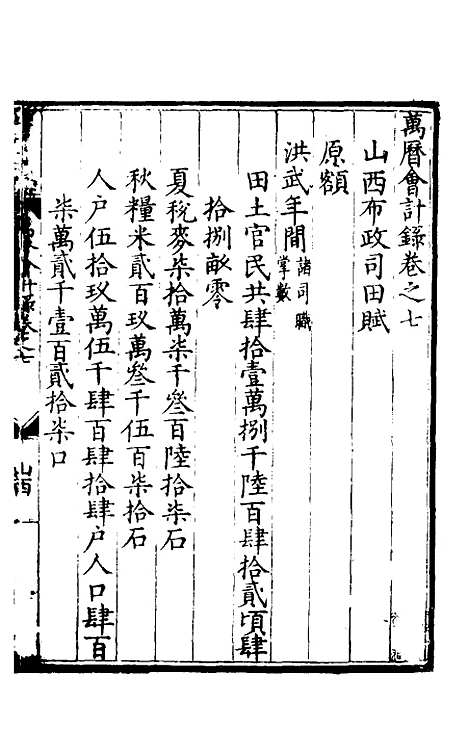 萬曆會計錄卷之七
山西布政司田賦
原額
洪武年間諸司職掌數
田土官民共肆拾壹萬捌千陸百肆拾貳頃肆
拾捌畝零
夏稅麥柒拾萬柒千叄百陸拾柒石
秋糧米貳百玖萬叄千伍百柒拾石
人户伍拾玖萬伍千肆百肆拾肆户人口肆百
柒萬貳千壹百貳拾柒口
山西
一